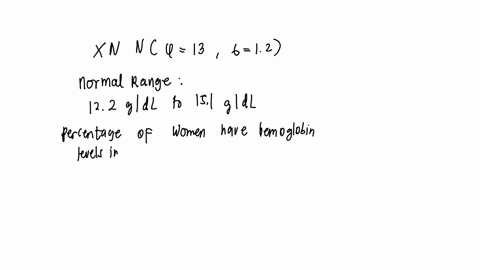 XN N(φ=13, 6=1.2)
Normal Range:
12.2 g|dL to 15.1 g|dL
percentage of women have hemoglobin
levels in